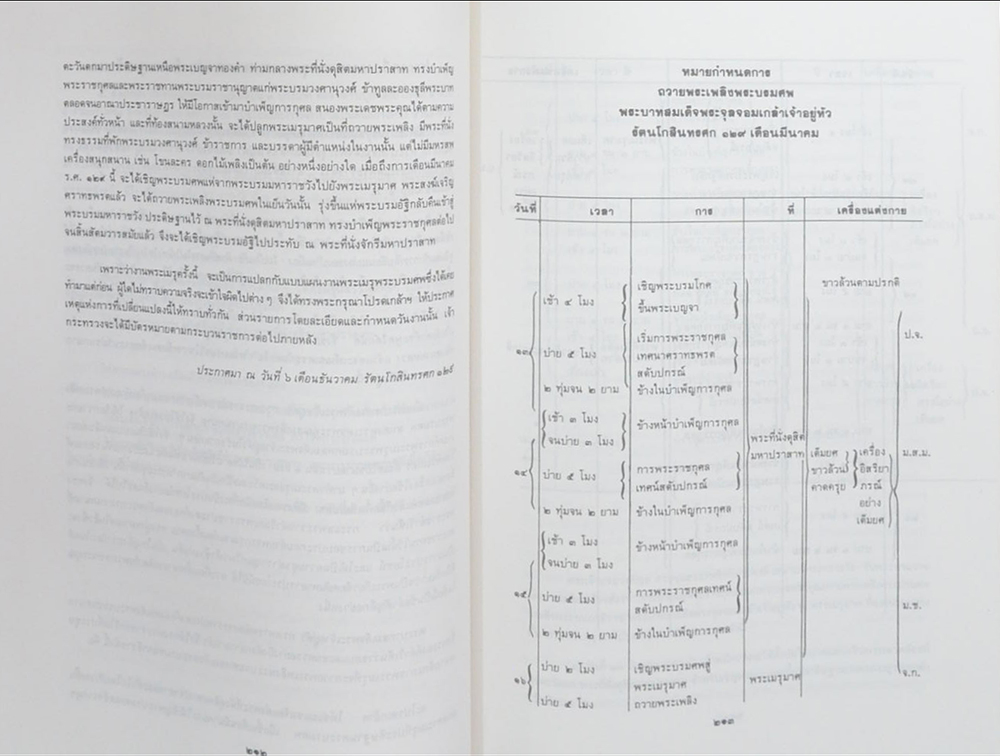 ตะวันตกมาประดิษฐานเหนือพระเบญจาทองคำ ท่ามกลางพระที่นั่งดุสิตมหาปราสาท ทรงบำเพ็ญ
พระราชกุศลและพระราชทานพระบรมราชานุญาตแก่พระบรมวงศานุวงศ์ ข้าทูลละอองธุลีพระบาท
ตลอดจนอาณาประชาราษฎร ให้มีโอกาสเข้ามาบำเพ็ญการกุศล สนองพระเดชพระคุณได้ตามความ
ประสงค์ทั่วหน้า และที่ท้องสนามหลวงนั้น จะได้ปลูกพระเมรุมาศเป็นที่ถวายพระเพลิง มีพระที่นั่ง
ทรงธรรมที่พักพระบรมวงศานุวงศ์ ข้าราชการ และบรรดาผู้มีตำแหน่งในงานนั้น แต่ไม่มีมหรสพ
เครื่องสนุกสนาน เช่น โขนละคร ดอกไม้เพลิงเป็นต้น อย่างหนึ่งอย่างใด เมื่อถึงการเดือนมีนาคม
ร.ศ. ๑๒๙ นี้ จะได้เชิญพระบรมศพแห่จากพระบรมมหาราชวังไปยังพระเมรุมาศ พระสงฆ์เจริญ
ศราทธพรตแล้ว จะได้ถวายพระเพลิงพระบรมศพในเย็นวันนั้น รุ่งขึ้นแห่พระบรมอัฐิกลับคืนเข้าสู่
พระบรมมหาราชวัง ประดิษฐานไว้ ณ พระที่นั่งดุสิตมหาปราสาท ทรงบำเพ็ญพระราชกุศลต่อไป
จนสิ้นสัตมวารสมัยแล้ว จึงจะได้เชิญพระบรมอัฐิไปประทับ ณ พระที่นั่งจักรีมหาปราสาท
เพราะว่างานพระเมรุครั้งนี้ จะเป็นการแปลกกับแบบแผนงานพระเมรุพระบรมศพซึ่งได้เคย
ทำมาแต่ก่อน ผู้ใดไม่ทราบความจริงจะเข้าใจผิดไปต่างๆ จึงได้ทรงพระกรุณาโปรดเกล้าฯ ให้ประกาศ
เหตุแห่งการที่เปลี่ยนแปลงนี้ให้ทราบทั่วกัน ส่วนรายการโดยละเอียดและกำหนดวันงานนั้น เจ้า
กระทรวงจะได้มีบัตรหมายตามกระบวนราชการต่อไปภายหลัง
ประกาศมา ณ วันที่ ๖ เดือนธันวาคม รัตนโกสินทรศก ๑๒๙
๒๑๒
หมายกำหนดการ
ถวายพระเพลิงพระบรมศพ
พระบาทสมเด็จพระจุลจอมเกล้าเจ้าอยู่หัว
รัตนโกสินทรศก ๑๒๙ เดือนมีนาคม
วันที่ เวลา การ ที่ เครื่องแต่งกาย
ขาวล้วนตามปรกติ
๑๓ เช้า ๔ โมง เชิญพระบรมโกศ
ขึ้นพระเบญจา
บ่าย ๕ โมง เริ่มการพระราชกุศล
เทศนาศราทธพรต
สดับปกรณ์
๒ ทุ่มจน ๒ ยาม ข้างในบำเพ็ญการกุศล
๑๔ เช้า ๓ โมง
จนบ่าย ๓ โมง ข้างหน้าบำเพ็ญการกุศล
บ่าย ๕ โมง การพระราชกุศล
เทศน์สดับปกรณ์
๒ ทุ่มจน ๒ ยาม ข้างในบำเพ็ญการกุศล
๑๕ เช้า ๓ โมง
จนบ่าย ๓ โมง ข้างหน้าบำเพ็ญการกุศล
บ่าย ๕ โมง การพระราชกุศลเทศน์
สดับปกรณ์
๒ ทุ่มจน ๒ ยาม ข้างในบำเพ็ญการกุศล
พระที่นั่งดุสิต
มหาปราสาท
เต็มยศ
ขาวล้วน
คาดครุย
เครื่อง
อิสริยา
ภรณ์
อย่าง
เต็มยศ
ป.จ.
ม.ส.ม.
ม.ช.
จ.ก.
๑๖ บ่าย ๒ โมง เชิญพระบรมศพสู่
พระเมรุมาศ พระเมรุมาศ
บ่าย ๕ โมง ถวายพระเพลิง
๒๑๓